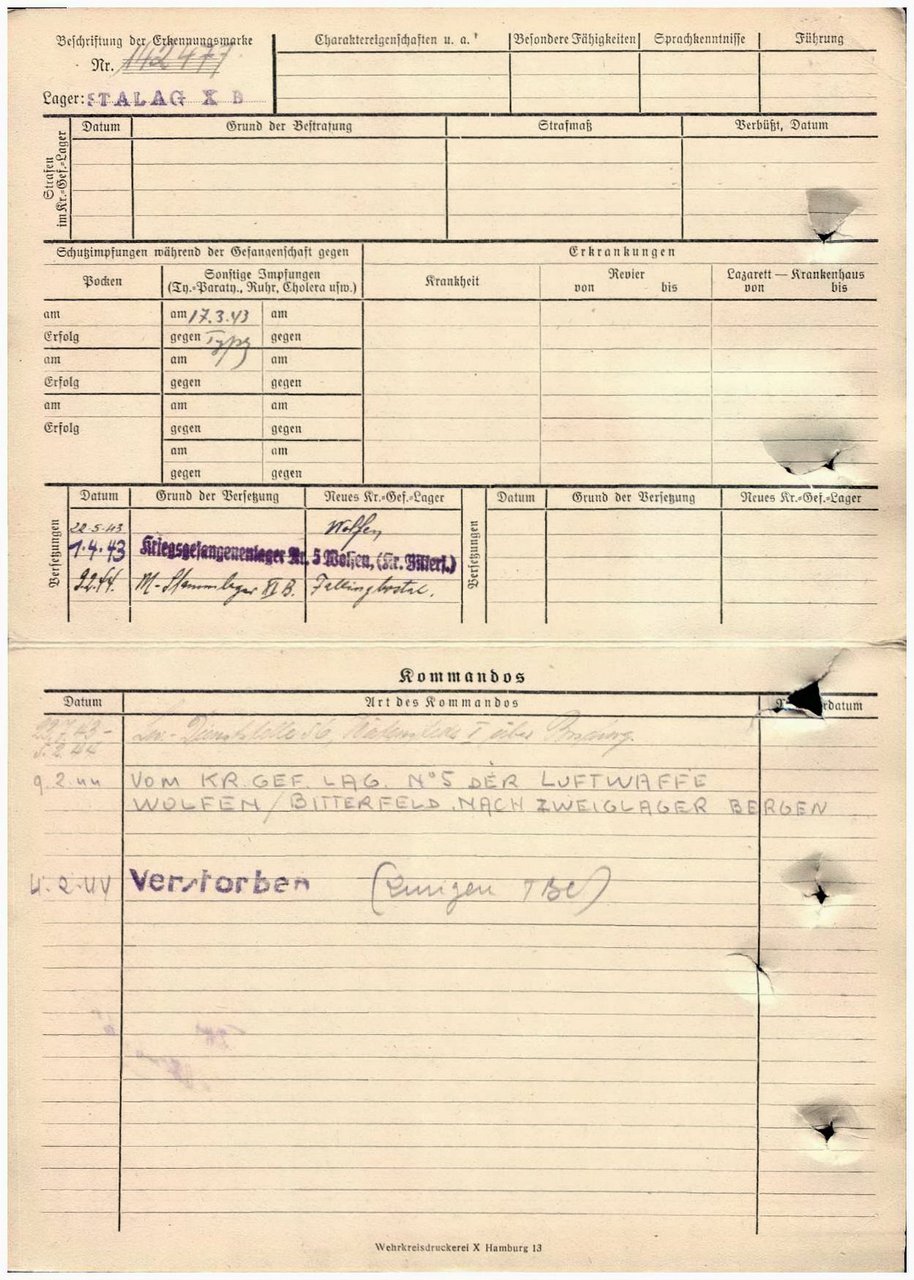 Beschriftung der Erkennungsmarke
Nr. 142477
Lager: STALAG X B
Charaktereigenschaften u. a. Besondere Fähigkeiten Sprachkenntnisse Führung
Strafen im Kr.-Gef.-Lager
Datum Grund der Bestrafung Strafmaß Verbüßt, Datum
Schutzimpfungen während der Gefangenschaft gegen
Erkrankungen
Pocken
Sonstige Impfungen
(Ty.-Paraty., Ruhr, Cholera usw.)
Krankheit
Revier
von bis
Lazarett — Krankenhaus
von bis
am am 17.3.43 am
Erfolg gegen gegen
am am am
Erfolg gegen gegen
am am am
Erfolg gegen gegen
am am
gegen gegen
Versetzungen
Datum Grund der Versetzung Neues Kr.-Gef.-Lager
22.5.43 Wolfen
1.4.43 Kriegsgefangenenlager Nr. 5 Wolfen, (Kr. Bitterf.)
9.2.44. M-Stammlager XI B. Fallingbostel.
Versetzungen
Datum Grund der Versetzung Neues Kr.-Gef.-Lager
Kommandos
Datum Art des Kommandos
9.2.44 VOM KR.GEF LAG. N°5 DER LUFTWAFFE
WOLFEN/BITTERFELD NACH ZWEIGLAGER BERGEN
Verstorben (Lungen TBC)
Wehrkreisdruckerei X Hamburg 13